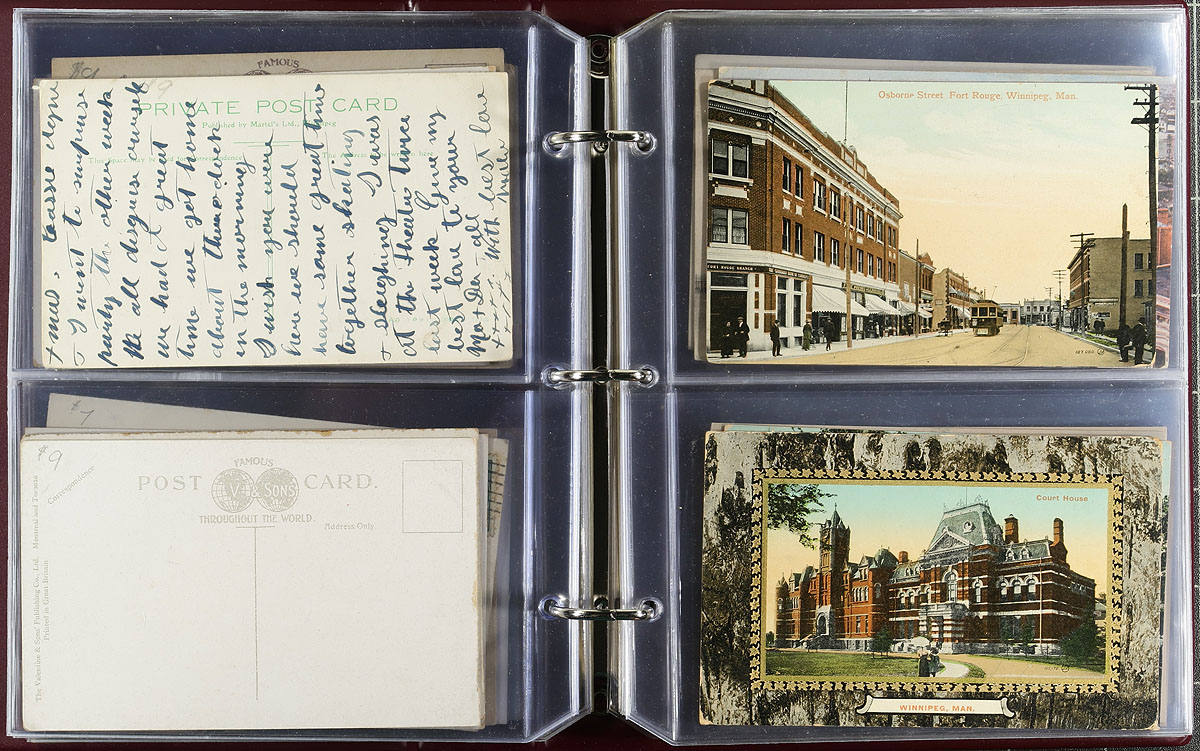 $9
FAMOUS
PRIVATE POST CARD
Published by Martel's Ltd., Winnipeg
This Space may be used for Correspondence
The Address
here
Xmas. Lassie
I went to surprise
party the other week
all disguise
we had a great
time we got home
about three o'clock
in the morning
I wish you were
here we should
have some great time
together skating
& sleighing I was
at the theatre twice
last week Give my
best love to your
Ma & Da all
With best love
x x x x
$7
$9
Correspondence
FAMOUS
POST CARD.
V & SONS
THROUGHOUT THE WORLD.
Address Only.
The Valentine & Sons' Publishing Co., Ltd. Montreal and Toronto
Printed in Great Britain
Osborne Street Fort Rouge, Winnipeg, Man.
FORT ROUGE BRANCH
Court House
WINNIPEG, MAN.